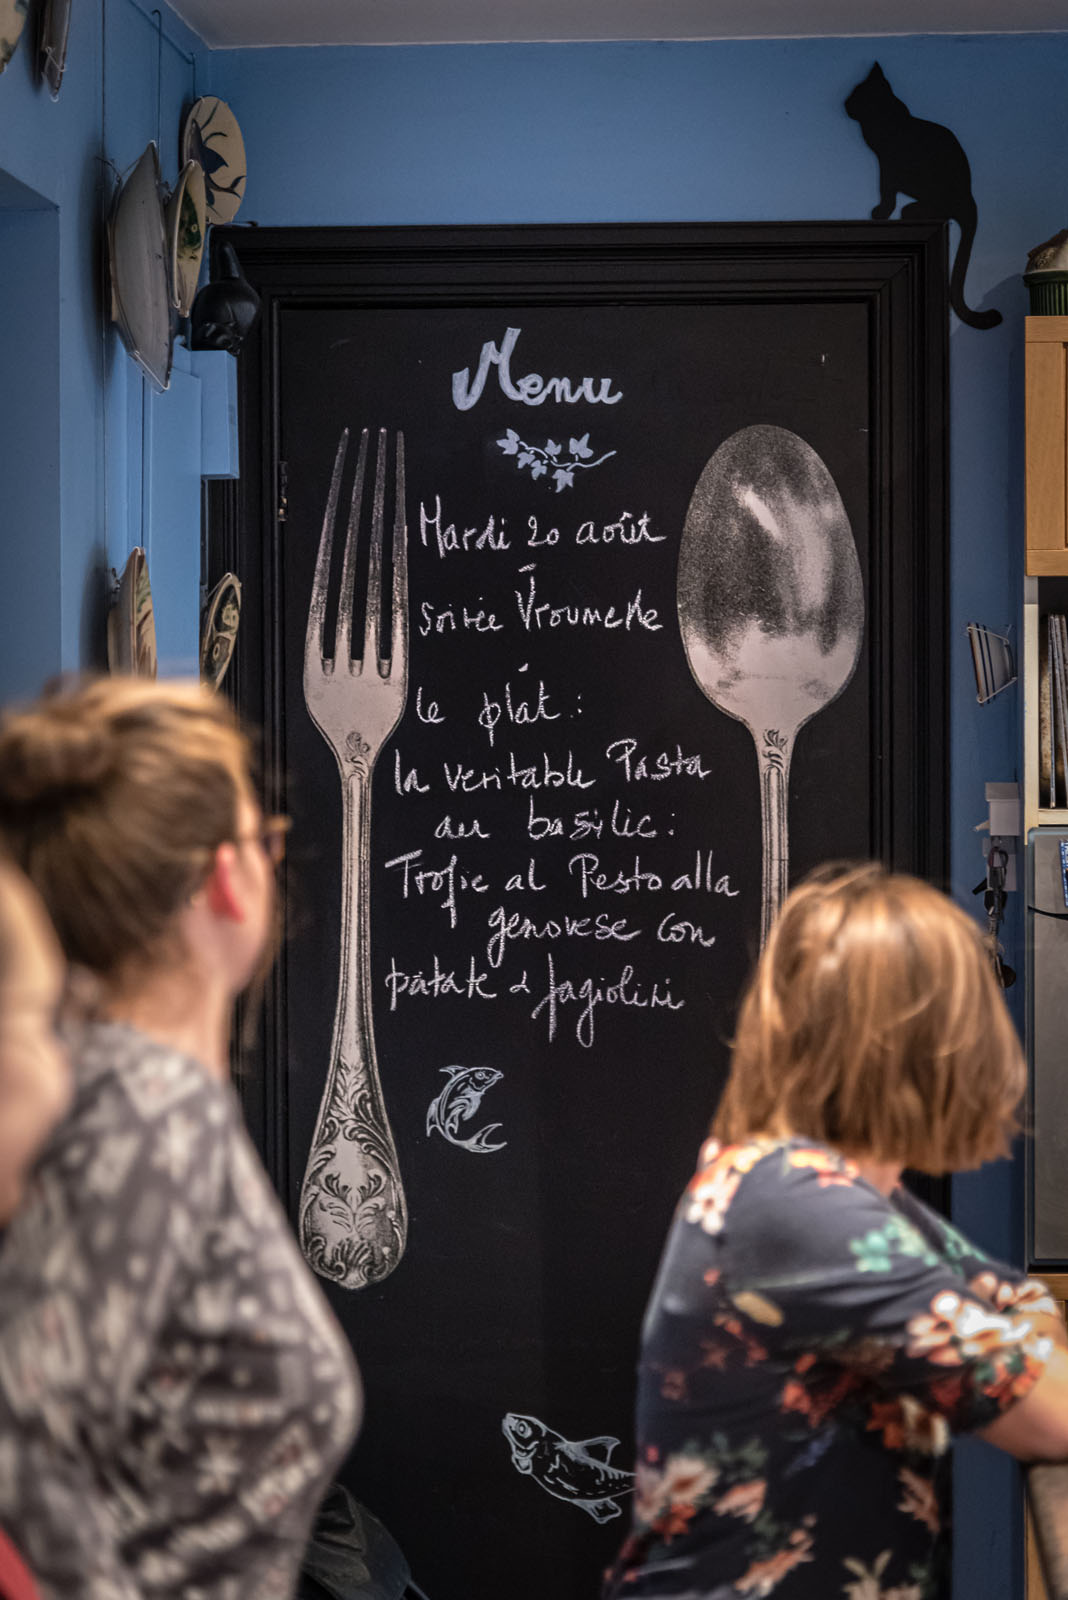 Menu
Mardi 20 août
Soirée Vroumette
le plat :
la veritable Pasta
au basilic :
Trofie al Pesto alla
genovese con
patate & fagiolini